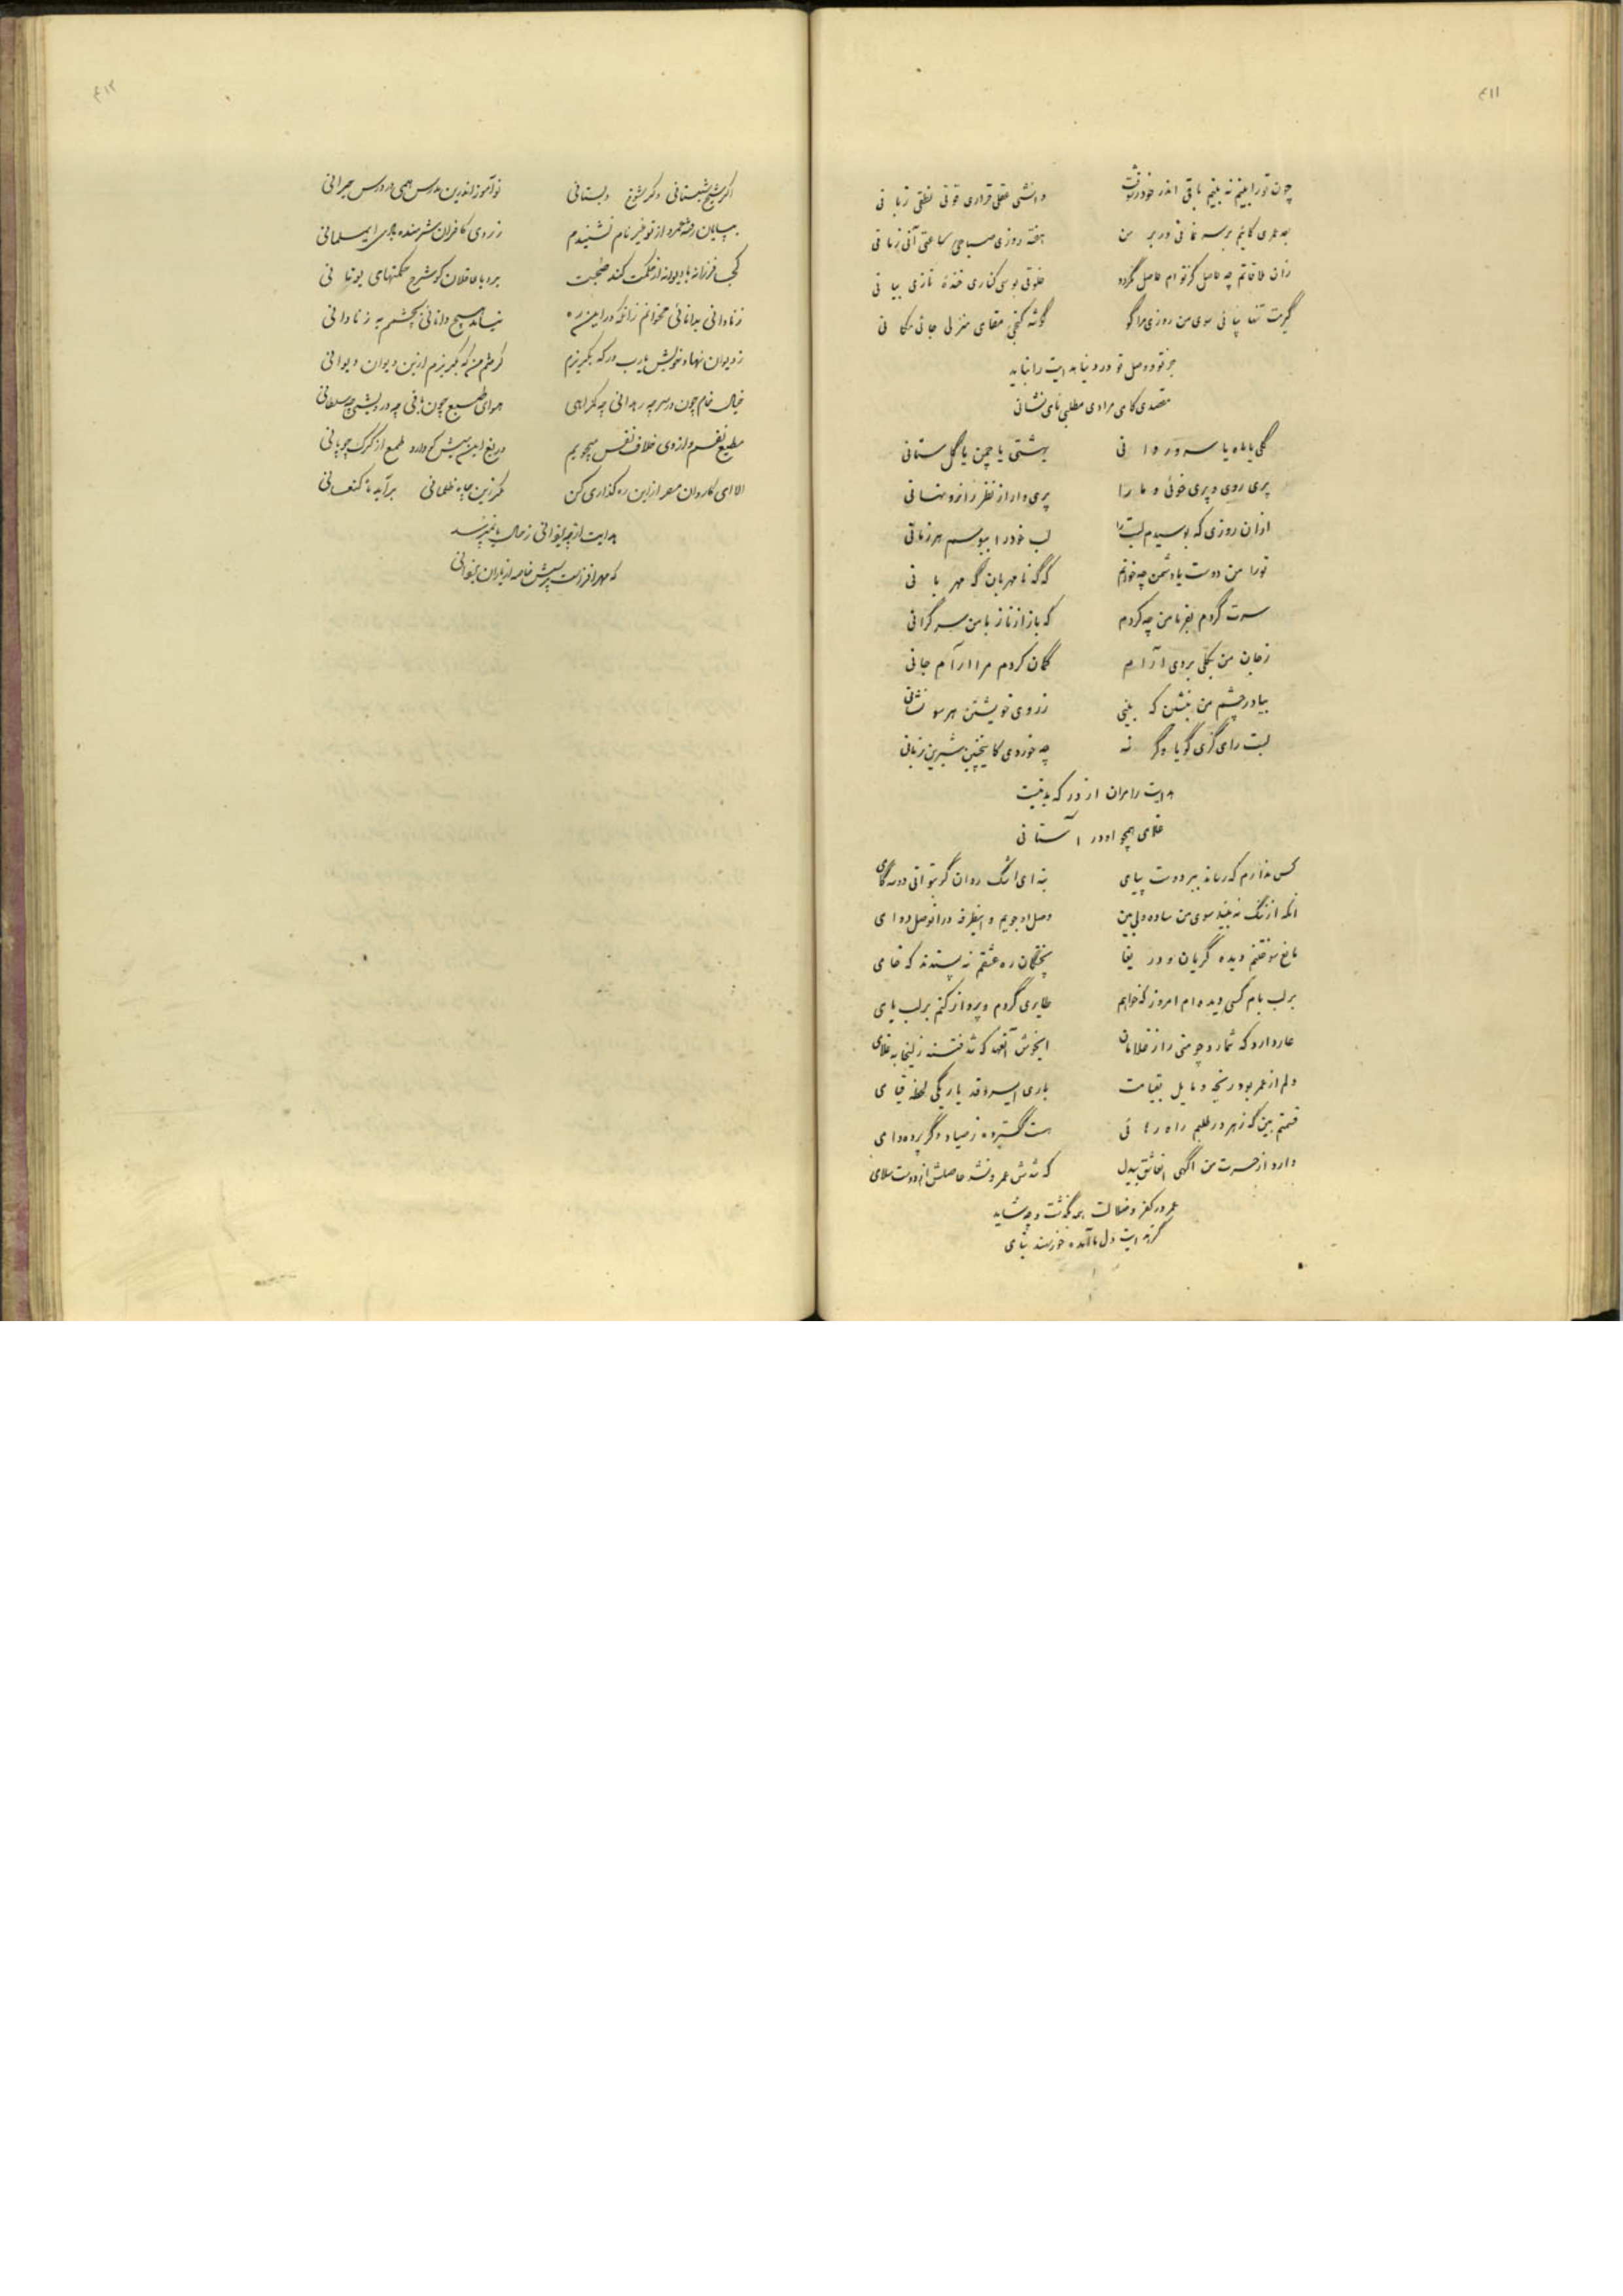 ۴۱۱
چون تو را بینم نه بینم باقی اندر خود ز شوقت
دانشی عقلی قراری قوتی نطقی زبانی
بعد عمری کایم بر سر نمانی در بر من
هفته روزی صباحی ساعتی آنی زمانی
زان ملاقاتم چه حاصل کز تو ام حاصل نگردد
خلوتی بوسی کناری خندهٔ نازی بیانی
گیرمت تنها بیائی سوی من روزی مرا گو
گوشه کنجی مقامی منزلی جائی مکانی
جز تو و وصل تو در دنیا هدایت را نباید
مقصدی کامی مرادی مطلبی نامی نشانی
گلی یا ماه یا سرو روانی
بهشتی یا چمن یا گلستانی
پری روی و پری خوئی و ما را
پری وار از نظر زانرو نهانی
از آن روزی که بوسیدم لبت را
لب خود را ببوسم هر زمانی
تو را من دوست یا دشمن چه خوانم
که گه نامهربان گه مهربانی
سرت گردم بفرما من چه کردم
که باز از ناز با من سرگرانی
ز جان من بکلی بردی آرام
گمان کردم مرا آرام جانی
بیا در چشم من بنشین که بینی
ز روی خویشتن هر سو نشانی
لبت را می گزی گویا وگر نه
چه خوردی کاینچنین شیرین زبانی
هدایت را مران از در که بد نیست
غلامی همچو او در آستانی
کس ندارم که رساند ببر دوست پیامی
نه ای اشک روان گر بتوانی دو سه گامی
آنکه از ننگ نه بیند سوی من ساده دلی بین
وصل او جویم و آنطرفه در آنوصل دوامی
با غم سوختم و دیده گریان و دریغا
پختگان ره عشقم نه پسندند که خامی
بر لب بام کسی دیده ام امروز که خواهم
طایری گردم و پرواز کنم بر لب بامی
عار دارد که شمارد چو منی را ز غلامان
ایخوش آنعهد که شد فتنه زلیخا به غلامی
دلم از عمر بود رنجه و مایل بقیامت
باری ایسرو قد یار یکی لحظه قیامی
قسمتم بین که ز هر در طلبم راه رهائی
هست گسترده ز صیاد دگر پرده دامی
دارد از حسرت من آگهی آنعاشق بیدل
که شدش عمر و نشد حاصلش از دوست سلامی
عمر در کفر و ضلالت همه بگذشت و چه شاید
گر هدایت دل ما آمده خورسند بنامی
۴۱۲
اگر شیخ شبستانی وگر شوخ دبستانی
نوآموز اندرین مدرس همی در درس حیرانی
بپایان رفت عمر و از تو غیر نام نشنیدم
ز روی کافران شرمنده ام ای مسلمانی
کجا فرزانه با دیوانه از حکمت کند صحبت
برو با عاقلان گو شرح حکمتهای یونانی
ز نادانی بدانائی نخوانم زانکه در این ره
نیاید هیچ دانائی بچشمم به ز نادانی
ز دیوان نهاد خویش یارب در که بگریزم
گرفتم من که بگریزم ازین دیوان دیوانی
خیال خام چون در سر چه رهدانی چه گمراهی
هوای طمع چون باقی چه درویشی چه سلطانی
مطیع نفسم و از وی خلاف نفس میجویم
دریغ این میش کو دارد طمع از گرگ چوپانی
الا ای کاروان مصر از این ره گذاری کن
مگر زین چاه ظلمانی برآید ماه کنعانی
هدایت از چه ایوانی ز حال ما نمیپرسد
که مهر افزاست پرسش خاصه از یاران ایوانی